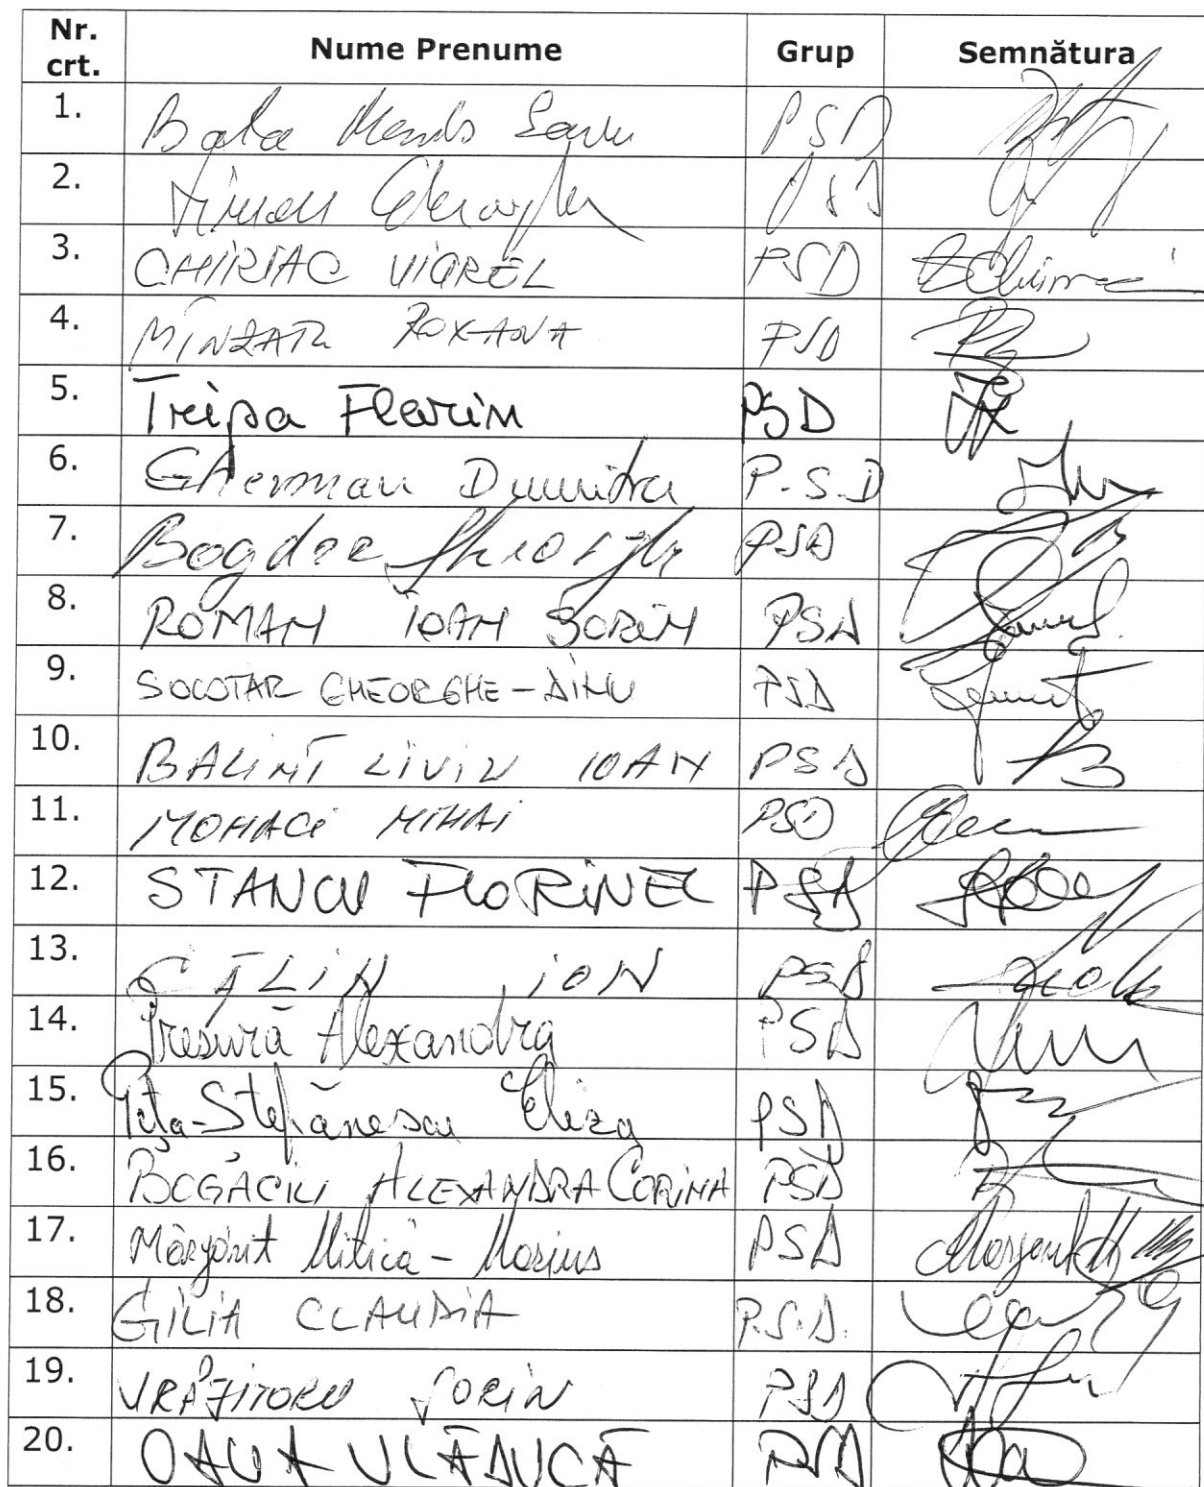 Nr. crt. Nume Prenume Grup Semnătura
1. Bota PSD
2. Șimon Gheorghe PSD
3. CHIRIAC VIOREL PSD
4. MÎNZATU ROXANA PSD
5. Tripa Florin PSD
6. Gherman Dumitru P.S.D
7. Bogdan Gheorghe PSD
8. ROMAN IOAN SORIN PSD
9. SOCOTAR GHEORGHE-DINU PSD
10. BALINT LIVIU IOAN PSD
11. MOHACI MIHAI PSD
12. STANCU FLORINEL PSD
13. CĂLIN ION PSD
14. Presură Alexandra PSD
15. Peța-Ștefănescu Eliza PSD
16. BOGACIU ALEXANDRA CORINA PSD
17. Mărgărit Mitică-Marius PSD
18. GILIA CLAUDIA P.S.D.
19. VRĂJITORU SORIN PSD
20. OALĂ VLĂDUCĂ PSD